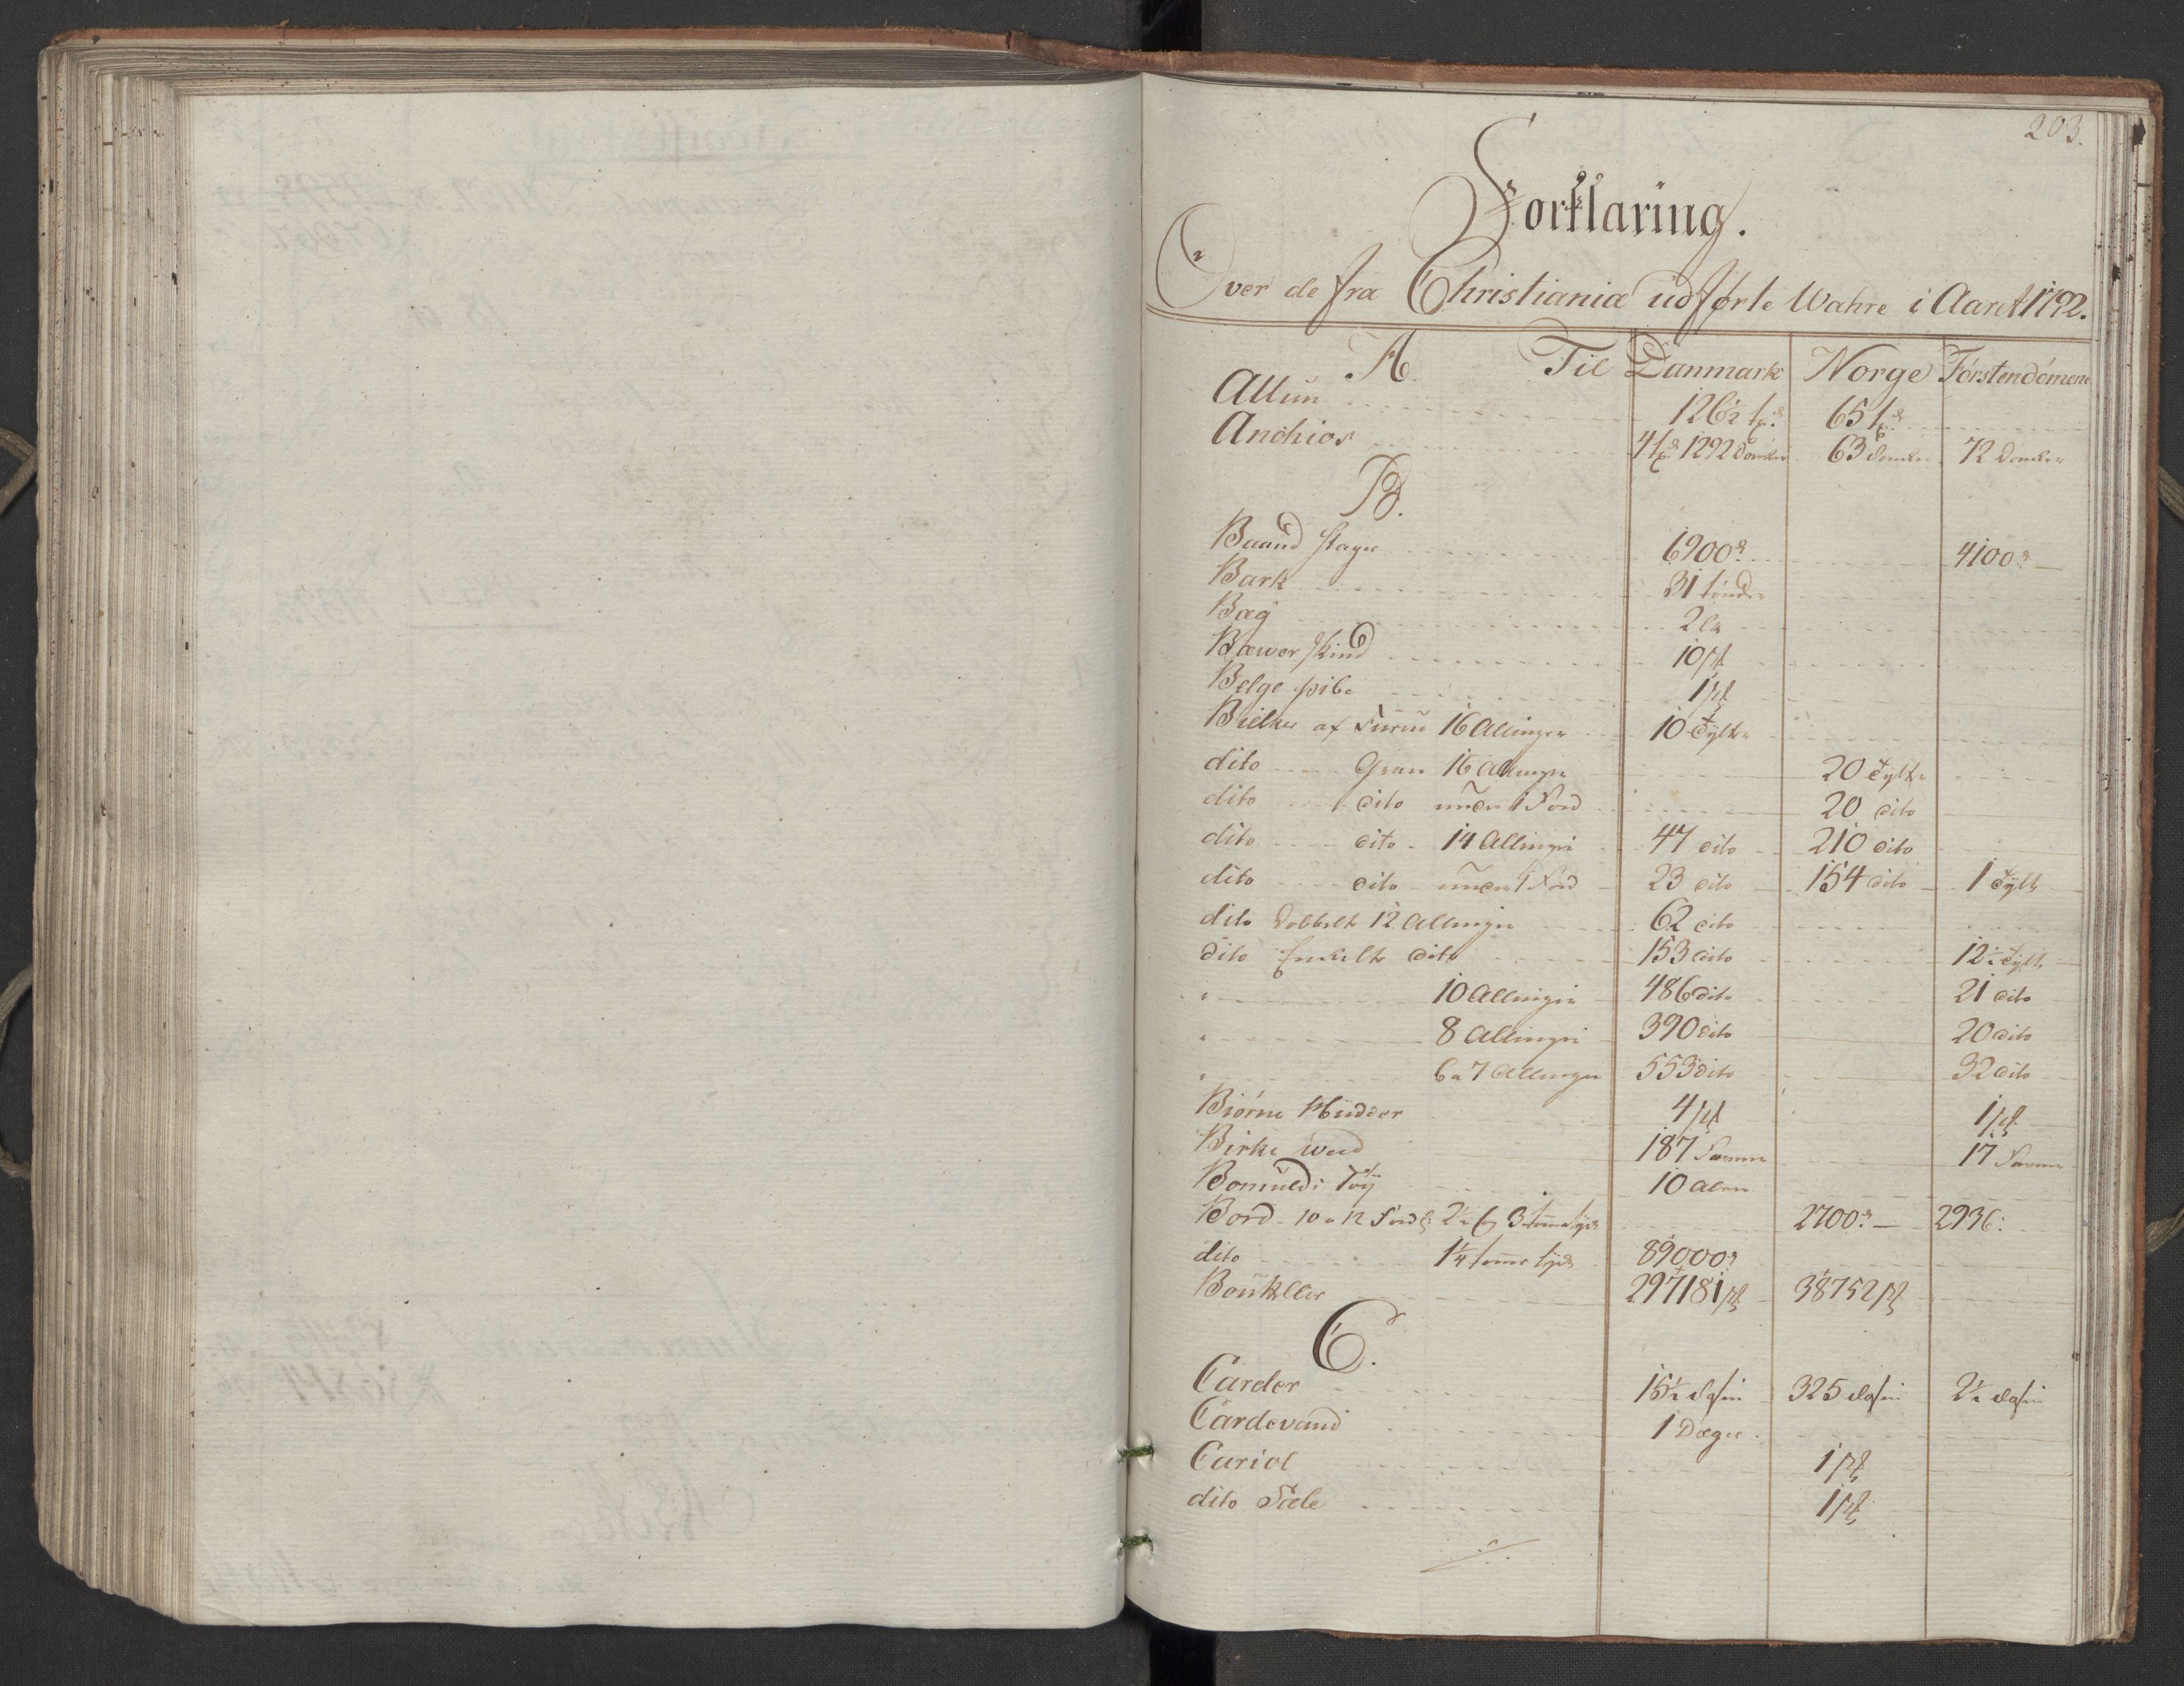 203.
Forklaring.
Over de fra Christiania udførte Wahre i Aaret 1792.
A. Til Danmark Norge Förstendömene
Allun 126½ 65
Anchios 1292 Douker 63 Douker 72 Douker
B.
Baand stager 6900 4100
Bark 31 tönder
Bag 2
Bæwer skind 10 ps
Belge pibe 1 ps
Bielker af Furru 16 Allinger 10 Tylter
dito Gran 16 Allinger 20 Tylte
dito dito under 1 Fod 20 dito
dito dito 14 Allinger 47 dito 210 dito
dito dito under 1 Fod 23 dito 154 dito 1 Tylt
dito Dobbelt 12 Allinger 62 dito
dito Enkelte dito 153 dito 12½ Tylt
" 10 Allinger 486 dito 21 dito
" 8 Allinger 390 dito 20 dito
" 6 a 7 Allinger 553 dito 32 dito
Biörne Hudder 4 ps 1 ps
Birke wed 187 Fawne 17 Fawne
Bomulds Töÿ 10 Alen
Bord 10 a 12 Fods 2½ 3 tomme tyk 2700 2936
dito 1¼ tomme tyk 89000
Boutteller 297181 ps 38752 ps
C.
Carder 15½ dosin 325 dosin 2½ dosin
Cardevand 1 Deger
Cariol 1 ps
dito Sæle 1 ps